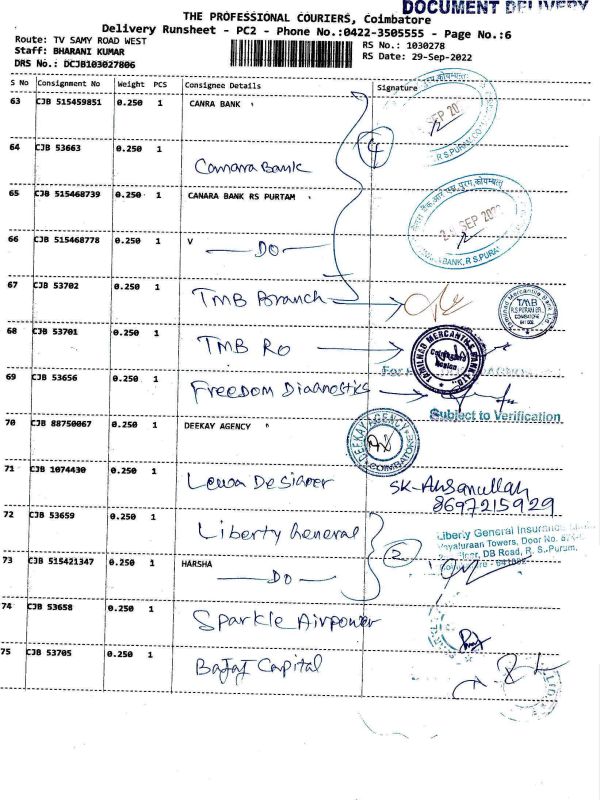 DOCUMENT DELIVERY
THE PROFESSIONAL COURIERS, Coimbatore
Delivery Runsheet - PC2 - Phone No.:0422-3505555 - Page No.:6
Route: TV SAMY ROAD WEST
RS No.: 1030278
Staff: BHARANI KUMAR
RS Date: 29-Sep-2022
DRS No.: DCJB103027806
S No Consignment No Weight PCS Consignee Details Signature
63 CJB 515459851 0.250 1 CANRA BANK
SEP 20
R.S.PURAM
4
64 CJB 53663 0.250 1 Canara Bank
65 CJB 515468739 0.250 1 CANARA BANK RS PURTAM
SEP 202
BANK, R.S.PURAM
66 CJB 515468778 0.250 1 V
DO
67 CJB 53702 0.250 1 TMB Branch
TMB
R.S PURAM BR.,
COIMBATORE
641 002
68 CJB 53701 0.250 1 TMB RO
TAMILNAD MERCANTILE BANK LTD.
Coimbatore
Region
69 CJB 53656 0.250 1 Freedom Diagnostics
Subject to Verification
70 CJB 88750067 0.250 1 DEEKAY AGENCY
DEEKAY AGENCY COIMBATORE
71 CJB 1074430 0.250 1 Lewa Designer
SK-Ahsanullah
8697215929
72 CJB 53659 0.250 1 Liberty General
Liberty General Insurance
Vayaturaan Towers, Door No.
DB Road, R. S. Puram,
2
73 CJB 515421347 0.250 1 HARSHA
DO
74 CJB 53658 0.250 1 Sparkle Airpower
75 CJB 53705 0.250 1 Bajaj Capital